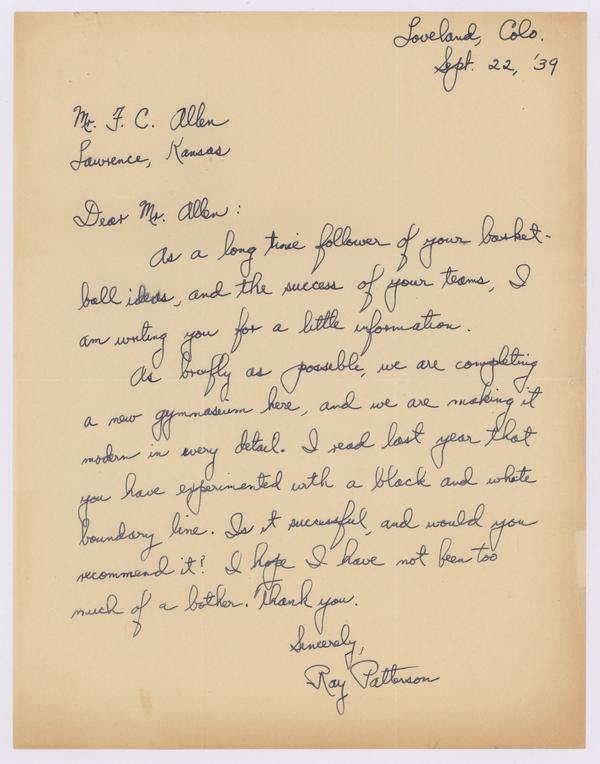 Loveland, Colo.
Sept. 22, '39
Mr. F. C. Allen
Lawrence, Kansas
Dear Mr. Allen:
As a long time follower of your basket-
ball ideas, and the success of your teams, I
am writing you for a little information.
As briefly as possible, we are completing
a new gymnasium here, and we are making it
modern in every detail. I read last year that
you have experimented with a black and white
boundary line. Is it successful, and would you
recommend it? I hope I have not been too
much of a bother. Thank you.
Sincerely,
Ray Patterson